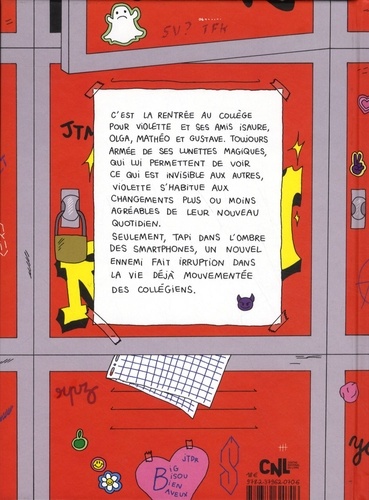 SV? TFK
JTM
C'EST LA RENTRÉE AU COLLÈGE
POUR VIOLETTE ET SES AMIS ISAURE,
OLGA, MATHÉO ET GUSTAVE. TOUJOURS
ARMÉE DE SES LUNETTES MAGIQUES,
QUI LUI PERMETTENT DE VOIR
CE QUI EST INVISIBLE AUX AUTRES,
VIOLETTE S'HABITUE AUX
CHANGEMENTS PLUS OU MOINS
AGRÉABLES DE LEUR NOUVEAU
QUOTIDIEN.
SEULEMENT, TAPI DANS L'OMBRE
DES SMARTPHONES, UN NOUVEL
ENNEMI FAIT IRRUPTION DANS
LA VIE DÉJÀ MOUVEMENTÉE
DES COLLÉGIENS.
JTDR
BIG
BISOU
BIEN
BAVEUX
CNL